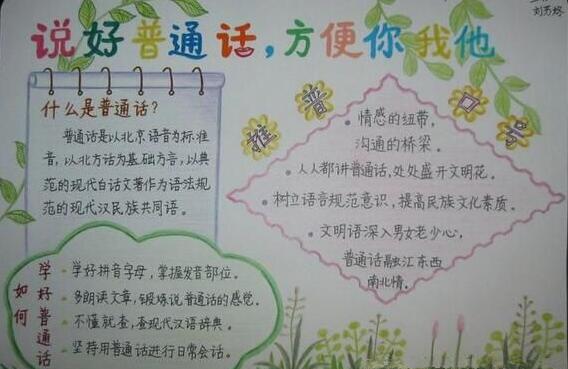 说好普通话,方便你我他
什么是普通话?
普通话是以北京语音为标准
音,以北方话为基础方言,以典
范的现代白话文著作为语法规
范的现代汉民族共同语。
推普口号
情感的纽带,
沟通的桥梁。
人人都讲普通话,处处盛开文明花。
树立语言规范意识,提高民族文化素质。
文明语深入男女老少心,
普通话融汇东西
南北情。
如何
学好普通话
学好拼音字母,掌握发音部位。
多朗读文章,锻炼说普通话的感觉。
不懂就查,查现代汉语辞典。
坚持用普通话进行日常会话。